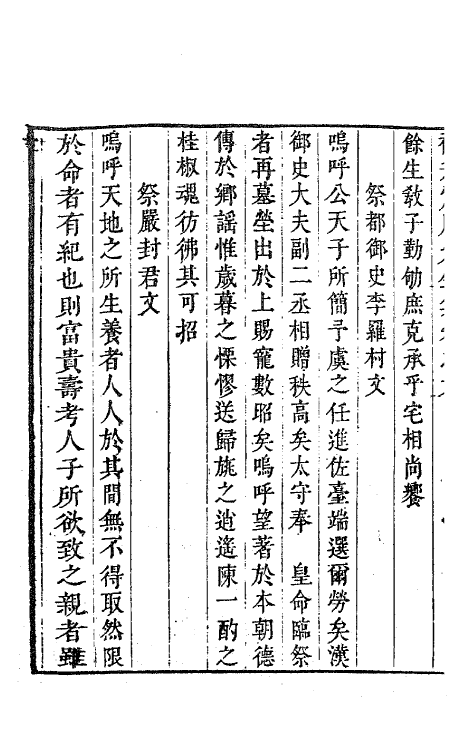 餘生敎子勤劬庶克承乎宅相尚饗
祭都御史李羅村文
嗚呼公天子所簡予虞之任進佐臺端選爾勞矣漢
御史大夫副二丞相贈秩高矣太守奉 皇命臨祭
者再墓塋出於上賜寵數昭矣嗚呼望著於本朝德
傳於鄉謠惟歲暮之慄憀送歸旐之逍遙陳一酌之
桂椒魂彷彿其可招
祭嚴封君文
嗚呼天地之所生養者人人於其間無不得取然限
於命者有紀也則富貴壽考人子所欲致之親者雖